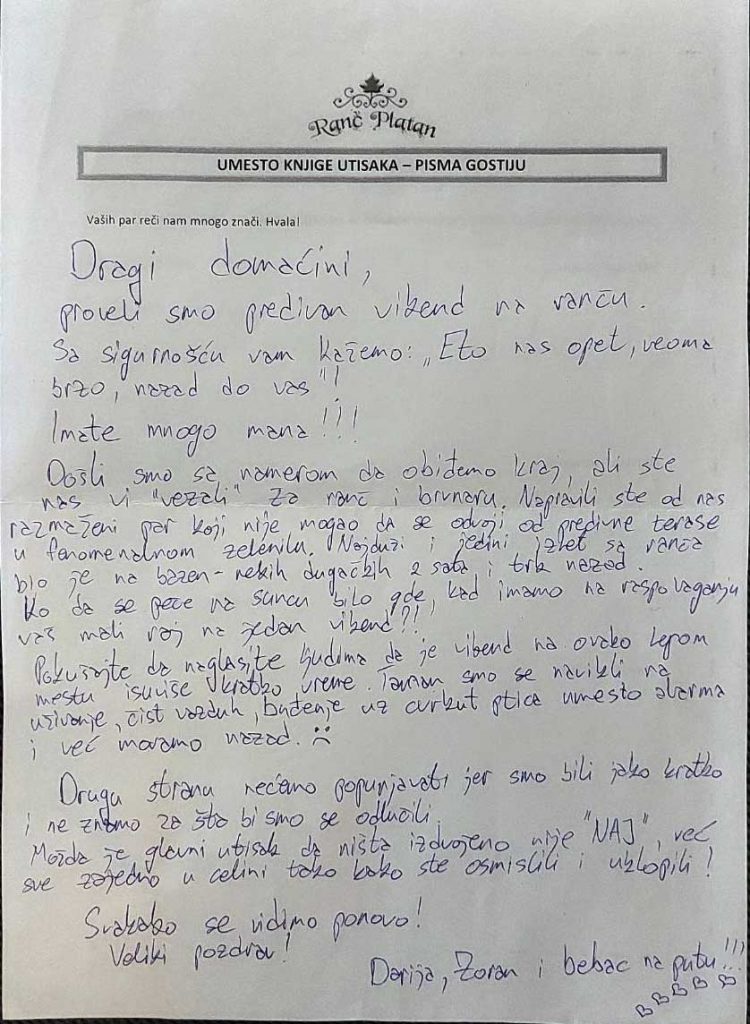 Ranč Platan
UMESTO KNJIGE UTISAKA – PISMA GOSTIJU
Vaših par reči nam mnogo znači. Hvala!
Dragi domaćini,
proveli smo predivan vikend na ranču.
Sa sigurnošću vam kažemo: „Eto nas opet, veoma
brzo, nazad do vas"!
Imate mnogo mana!!!
Došli smo sa namerom da obiđemo kraj, ali ste
nas vi "vezali" za ranč i brvnaru. Napravili ste od nas
razmaženi par koji nije mogao da se odvoji od predivne terase
u fenomenalnom zelenilu. Najduži i jedini izlet sa ranča
bio je na bazen - nekih dugačkih 2 sata i trk nazad.
Ko da se peče na suncu bilo gde, kad imamo na raspolaganju
vaš mali raj na jedan vikend?!
Pokušajte da naglasite ljudima da je vikend na ovako lepom
mestu isuviše kratko vreme. Taman smo se navikli na
uživanje, čist vazduh, buđenje uz cvrkut ptica umesto alarma
i već moramo nazad. ☹
Drugu stranu nećemo popunjavati jer smo bili jako kratko
i ne znamo za šta bi smo se odlučili.
Možda je glavni utisak da ništa izdvojeno nije "NAJ", već
sve zajedno u celini tako kako ste osmislili i uklopili!
Svakako se vidimo ponovo!
Veliki pozdrav!
Darija, Zoran i bebac na putu!!!